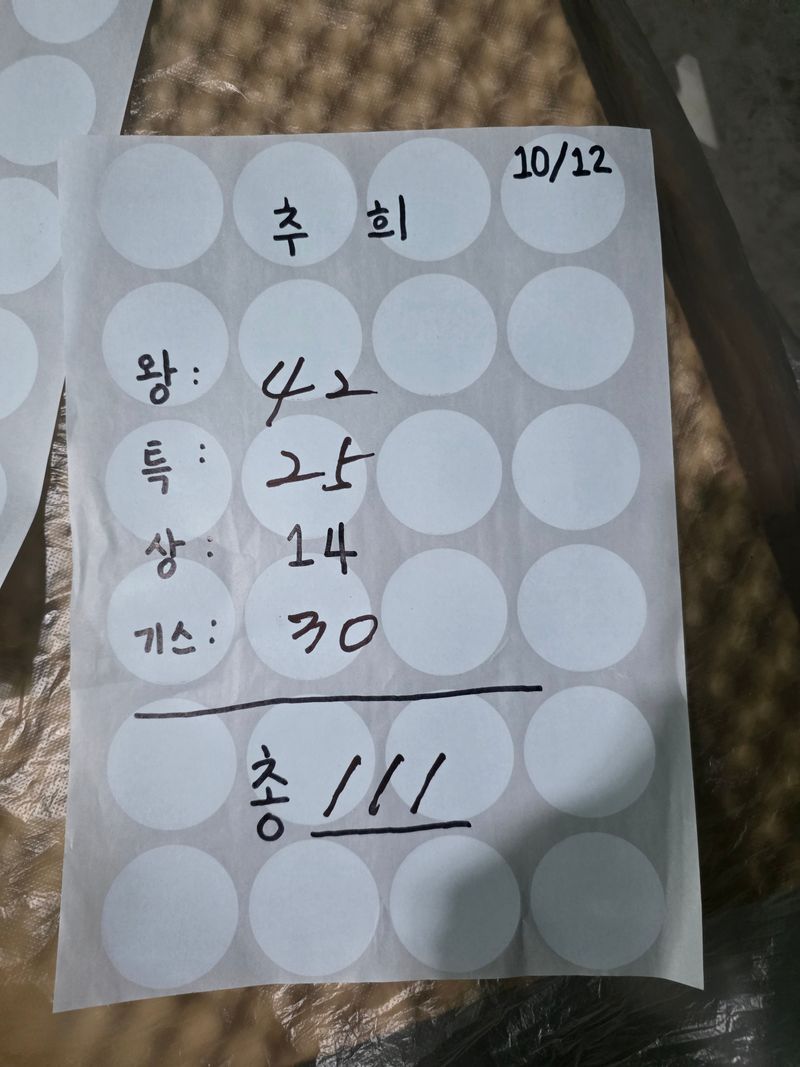 10/12
추 희
왕: 42
특: 25
상: 14
기스: 30
총 111